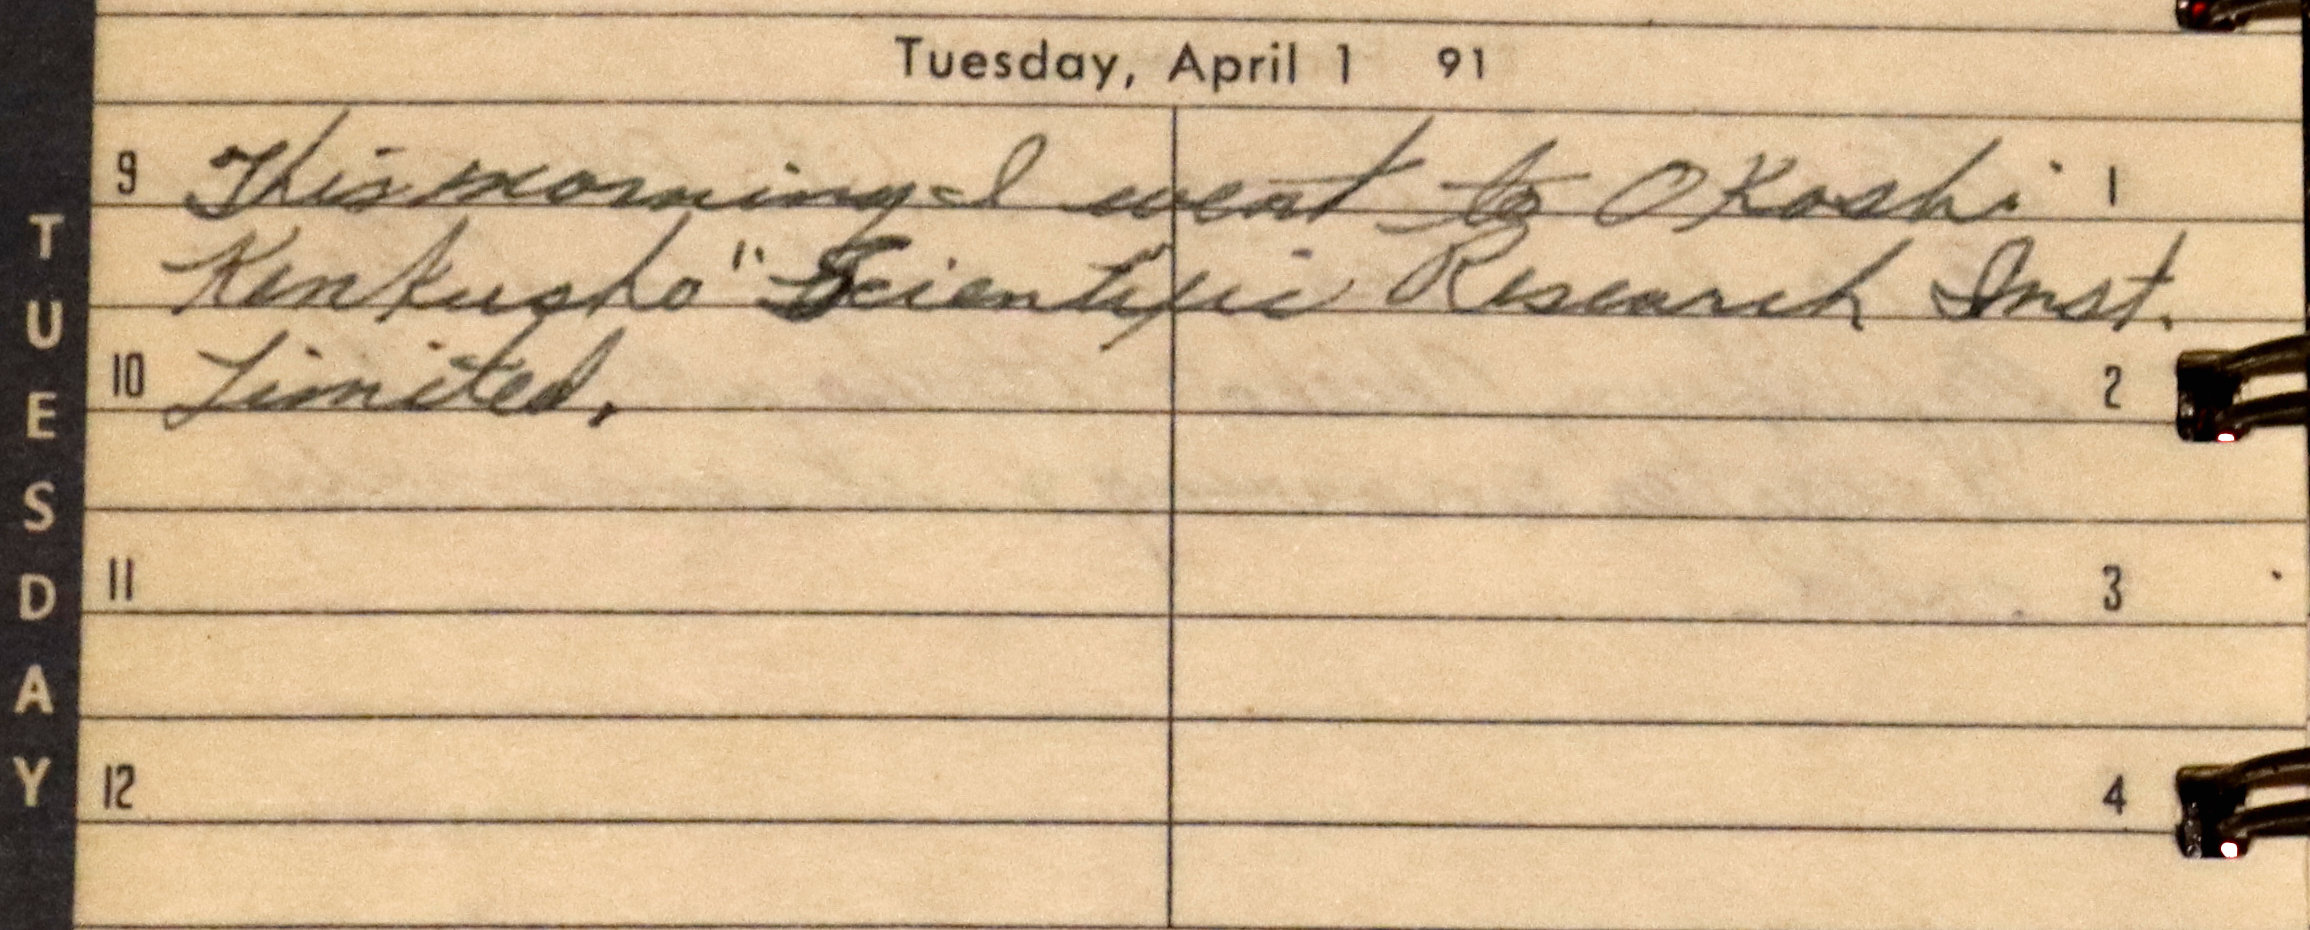 Tuesday, April 1 91
9 This morning I went to OKoshi 1
Kenkusho " Scientific Research Inst.
10 Limited. 2
11 3
12 4
TUESDAY